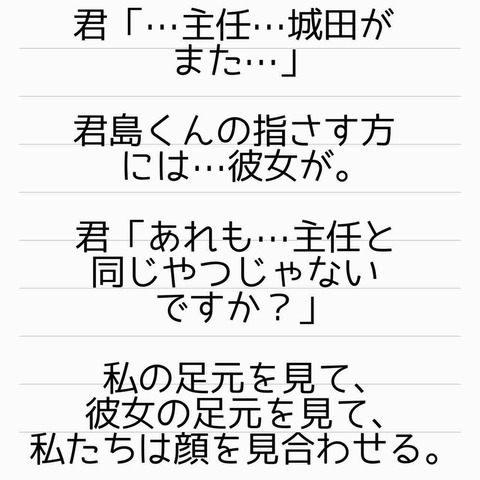 君「…主任…城田が
また…」
君島くんの指さす方
には…彼女が。
君「あれも…主任と
同じやつじゃない
ですか？」
私の足元を見て、
彼女の足元を見て、
私たちは顔を見合わせる。